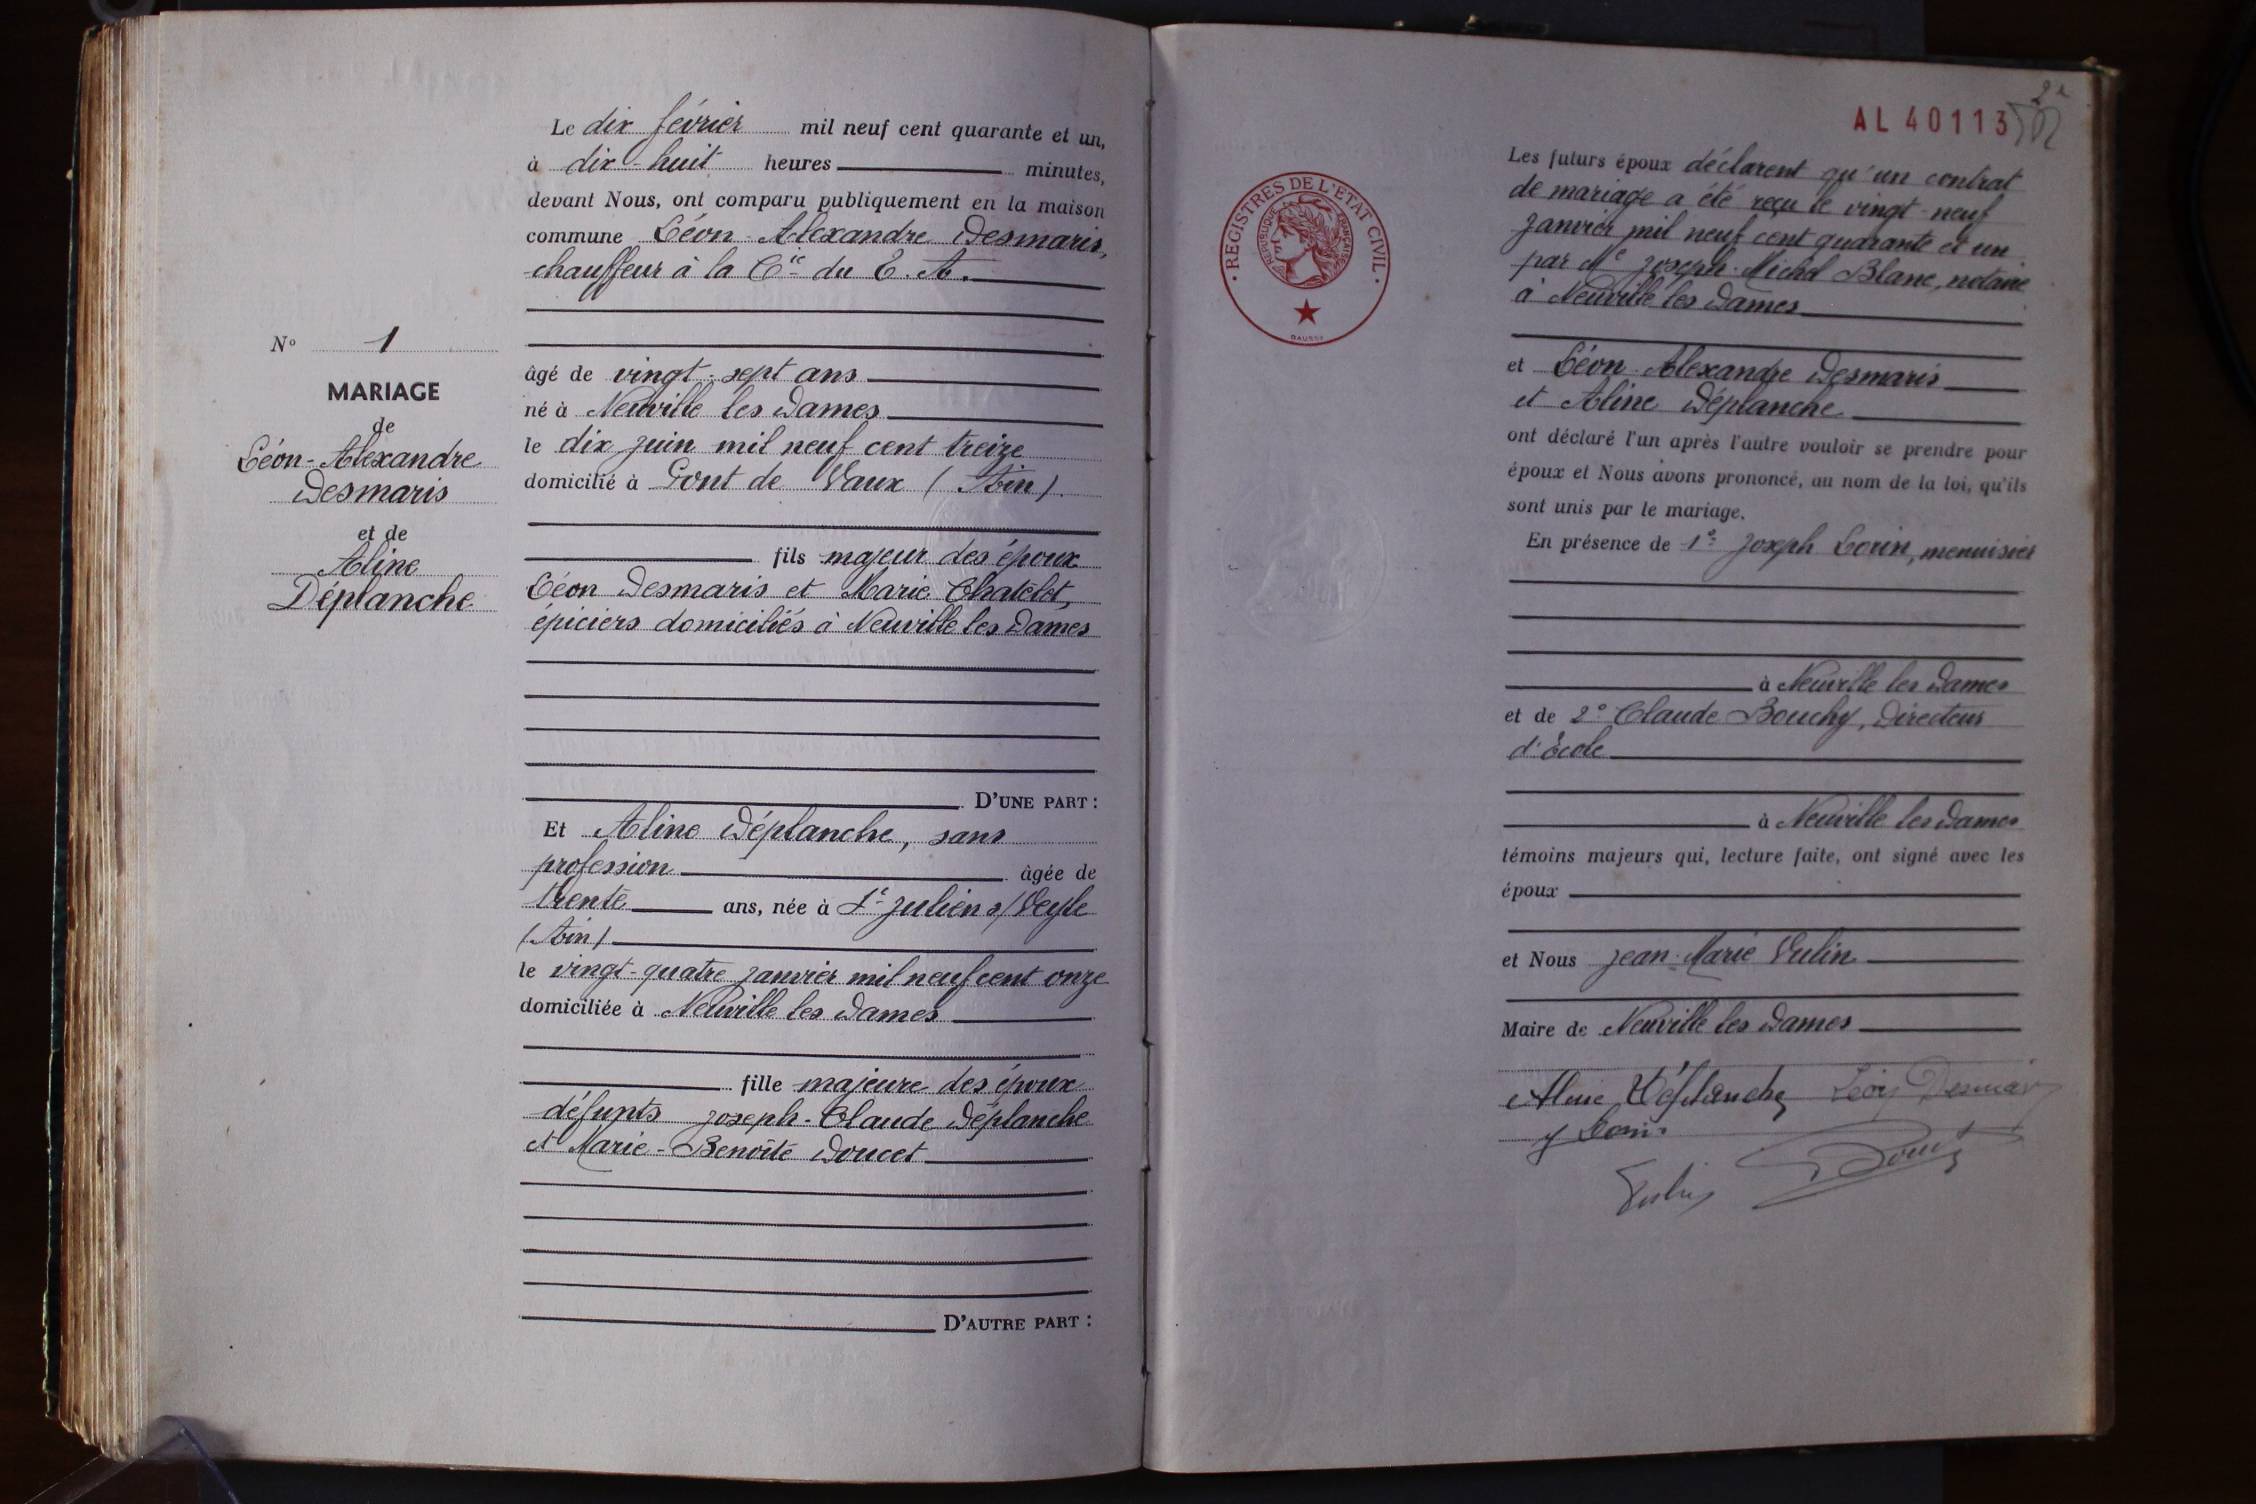 Le dix février mil neuf cent quarante et un,
à dix-huit heures minutes,
devant Nous, ont comparu publiquement en la maison
commune Léon-Alexandre Desmaris,
chauffeur à la Cie du E. A.
âgé de vingt-sept ans
né à Neuville les Dames
le dix juin mil neuf cent treize
domicilié à Pont de Vaux (Ain).
fils majeur des époux
Léon Desmaris et Marie Chatelet,
épiciers domiciliés à Neuville les Dames
D'UNE PART :
Et Aline Déplanche, sans
profession âgée de
trente ans, née à St Julien s/Veyle
(Ain)
le vingt-quatre janvier mil neuf cent onze
domiciliée à Neuville les Dames
fille majeure des époux
défunts Joseph-Claude Déplanche
et Marie-Benoîte Doucet
D'AUTRE PART :
No 1
MARIAGE
de
Léon-Alexandre
Desmaris
et de
Aline
Déplanche
AL 40113
REGISTRES DE L'ETAT CIVIL
REPUBLIQUE FRANÇAISE
Les futurs époux déclarent qu'un contrat
de mariage a été reçu le vingt-neuf
janvier mil neuf cent quarante et un
par Me Joseph-Michel Blanc, notaire
à Neuville les Dames
et Léon-Alexandre Desmaris
et Aline Déplanche
ont déclaré l'un après l'autre vouloir se prendre pour
époux et Nous avons prononcé, au nom de la loi, qu'ils
sont unis par le mariage.
En présence de 1° Joseph Lorin, menuisier
à Neuville les Dames
et de 2° Claude Bouchy, Directeur
d'École
à Neuville les Dames
témoins majeurs qui, lecture faite, ont signé avec les
époux
et Nous Jean-Marie Vulin
Maire de Neuville les Dames
Aline Déplanche Léon Desmaris
J Lorin
Vulin